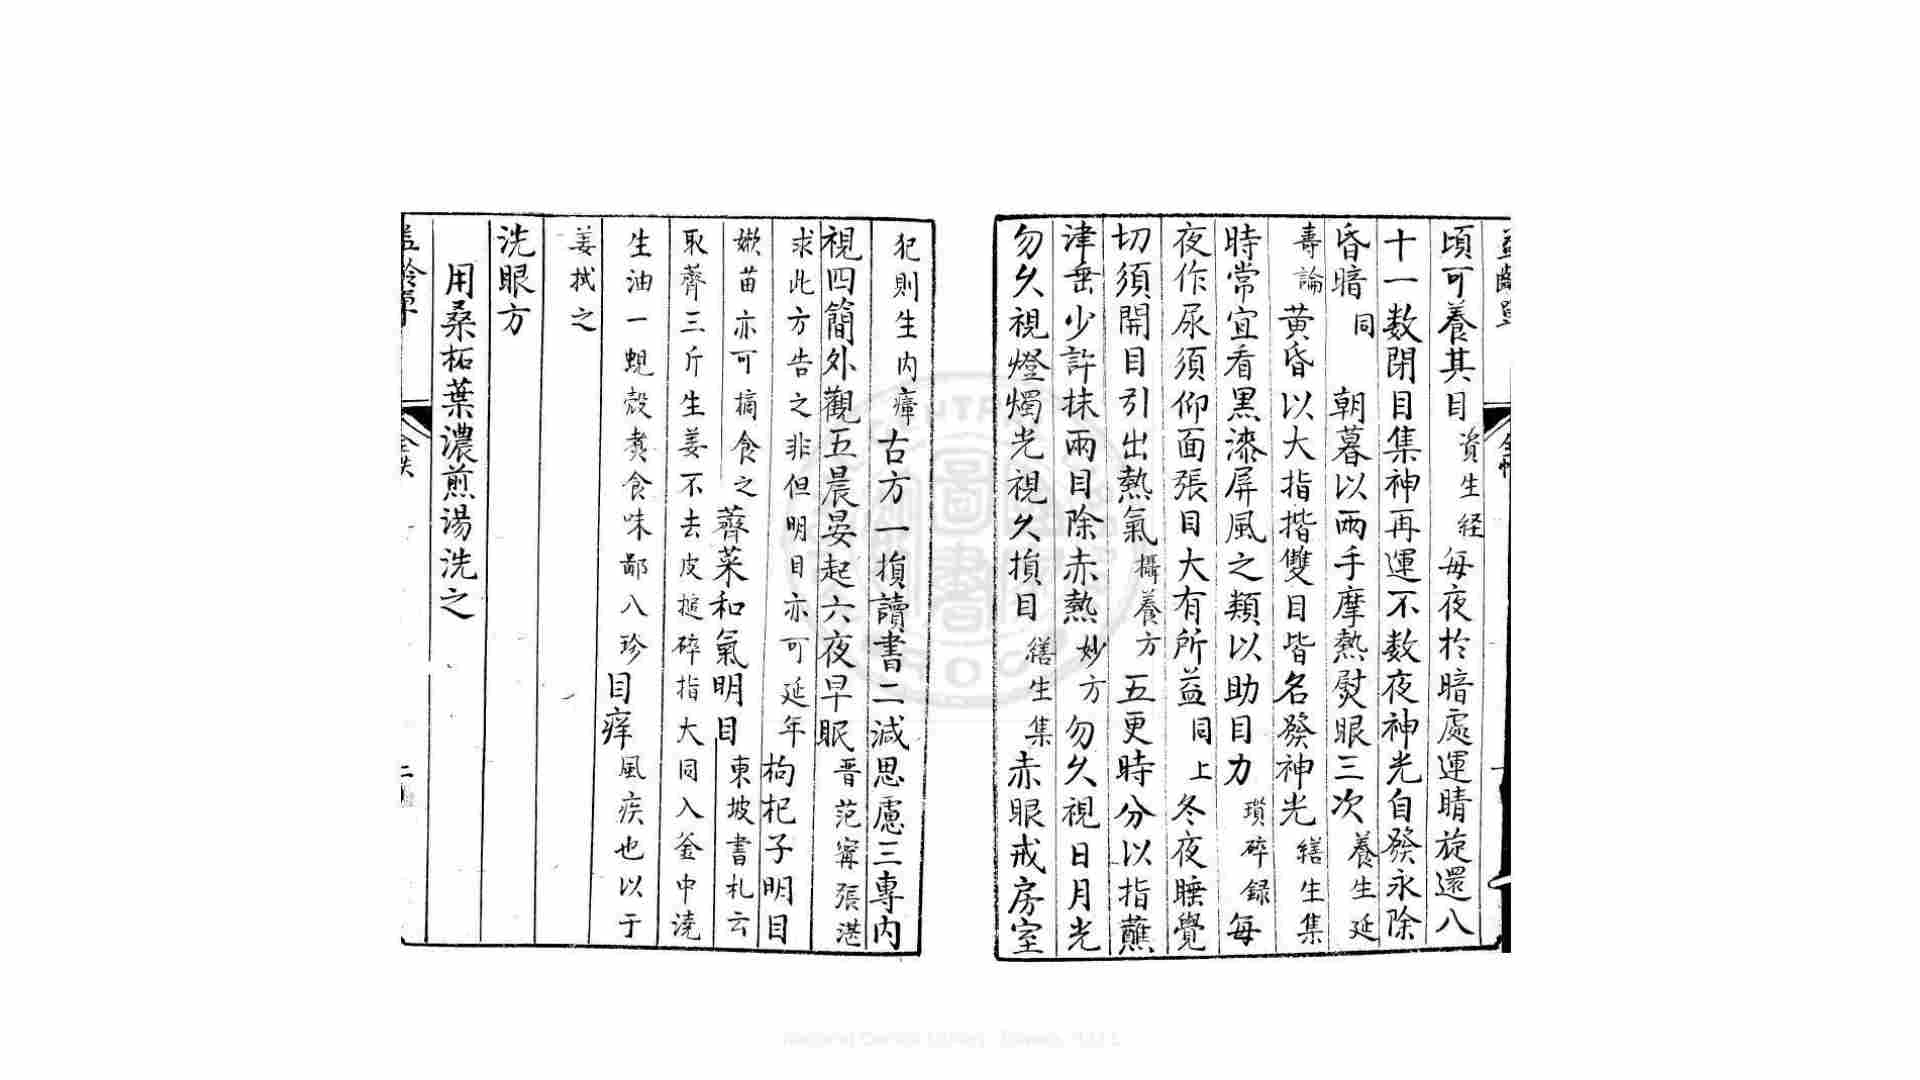 頃可養其目資生経每夜於暗處運睛旋還八
十一数閉目集神再運不数夜神光自發永除
昏暗同 朝暮以两手摩熱熨眼三次養生延
壽論黄昏以大指揩雙目眥名發神光繕生集
時常宜看黒漆屏風之類以助目力瑣碎録每
夜作尿須仰面張目大有所益同上冬夜睡覺
切須開目引出熱氣攝養方五更時分以指蘸
津垂少許抹兩目除赤熱妙方勿久視日月光
勿久視燈燭光視久損目繕生集赤眼戒房室
犯則生内瘴古方一損讀書二減思慮三專内
視四簡外觀五晨晏起六夜早眠晋范甯張湛
求此方告之非但明目亦可延年枸杞子明目
嫩苗亦可摘食之薺菜和氣明目東坡書札云
取薺三斤生姜不去皮搥碎指大同入釜中澆
生油一蜆殼煑食味鄙八珍目痒風疾也以于
姜拭之
洗眼方
用桑柘葉濃煎湯洗之